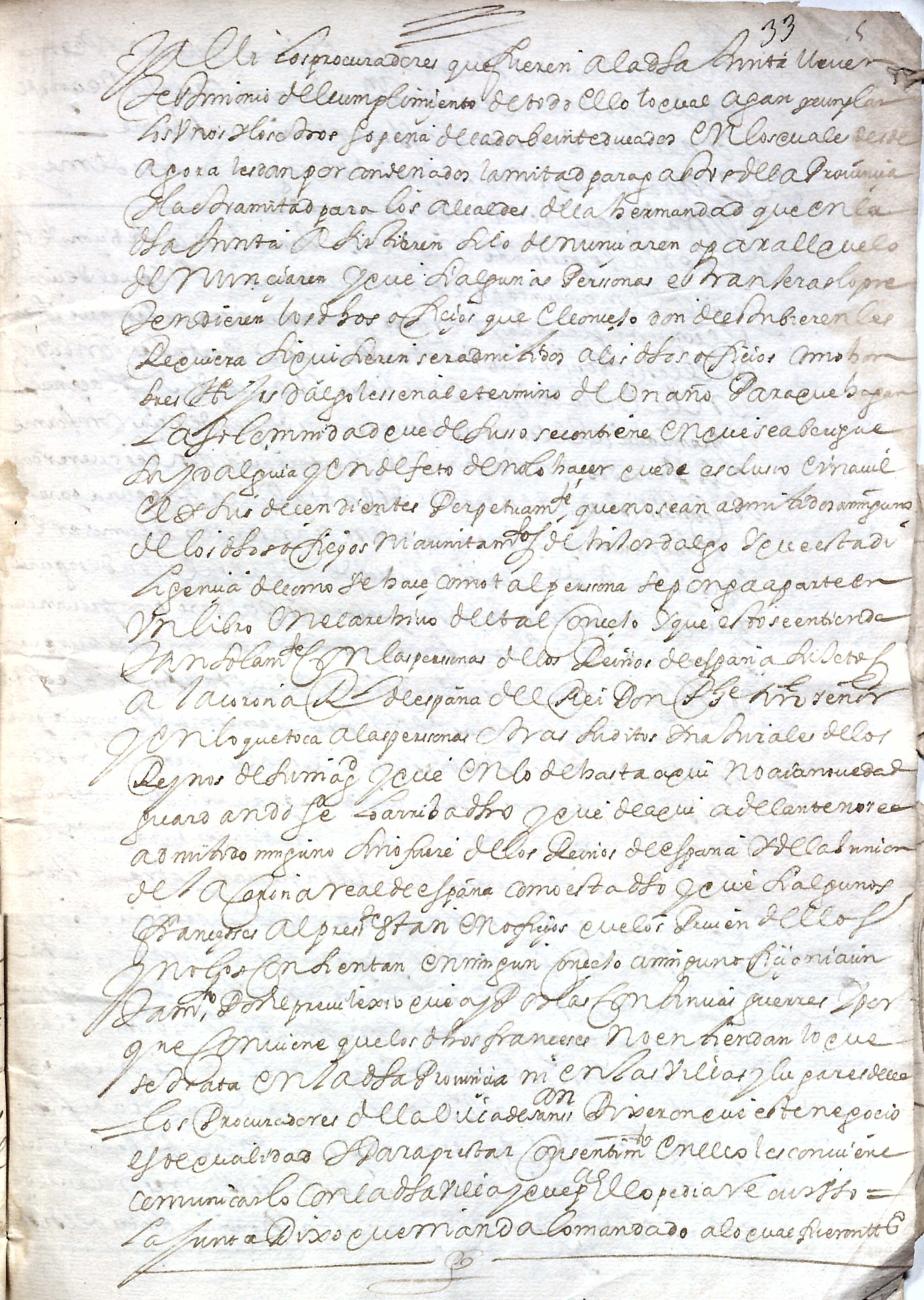 33
Y alli los procuradores que fueren a la dha Junta lleven
testimonio del cumplimiento de todo ello lo qual agan
los unos y los otros so pena de cada beinte ducados en los quales desde
agora les dan por condenados la mitad para gastos de la Provincia
y la otra mitad para los alcaldes de la hermandad que en la
dha Junta asistieren si lo denunciaren o para el que lo
denunciaren y que si algunas Personas estranjeras lo pre
tendieren los dhos oficios que el concejo donde estubieren les
Requiera si quisieren ser admitidos a los dhos oficios como hom
bres Hijos Dalgo les señale termino de Un año Para que hagan
La solemnidad que de suso se contiene en que se aberigue
su ydalguia y en defeto de no lo hacer quede escluso
el y sus decendientes Perpetuamte que no sean admitidos a ninguno
de los dhos oficios ni ayuntamtos de hijosdalgo y que esta di
ligencia de como se hace como tal persona se ponga a parte en
Un libro en el archivo del tal Concejo y que esto se entienda
tan solamte con las personas de los Reinos de españa sujetos
a la corona Rl de españa del Rei Don Phe nro señor
y en lo que toca a las personas otras suditos y naturales de los
Reynos de su magd y que en lo de hasta aqui no aia novedad
guardandose lo arriba dho y que de aqui adelante no sea
admitido ninguno si no fuere de los Reinos de españa y de la union
de la Corona real de españa como esta dho y que si algunos
franceses al preste estan en oficios que los Priven dellos
y no los consientan en ningun concejo a ninguno oficio ni aun
tamto Por el que ay Por las continuas guerras y por
que conviene que los dhos franceses no entiendan lo que
se trata en la dha Provincia ni en las Villas y lugares della
Los Procuradores de la Villa de san sn Dixeron que este negocio
es de qualidad y Para prestar Consentimto en ello les conviene
comunicarlo con la dha villa y que Para ello pedia recursso =
La Junta Dixo que manda lo mandado a lo qual